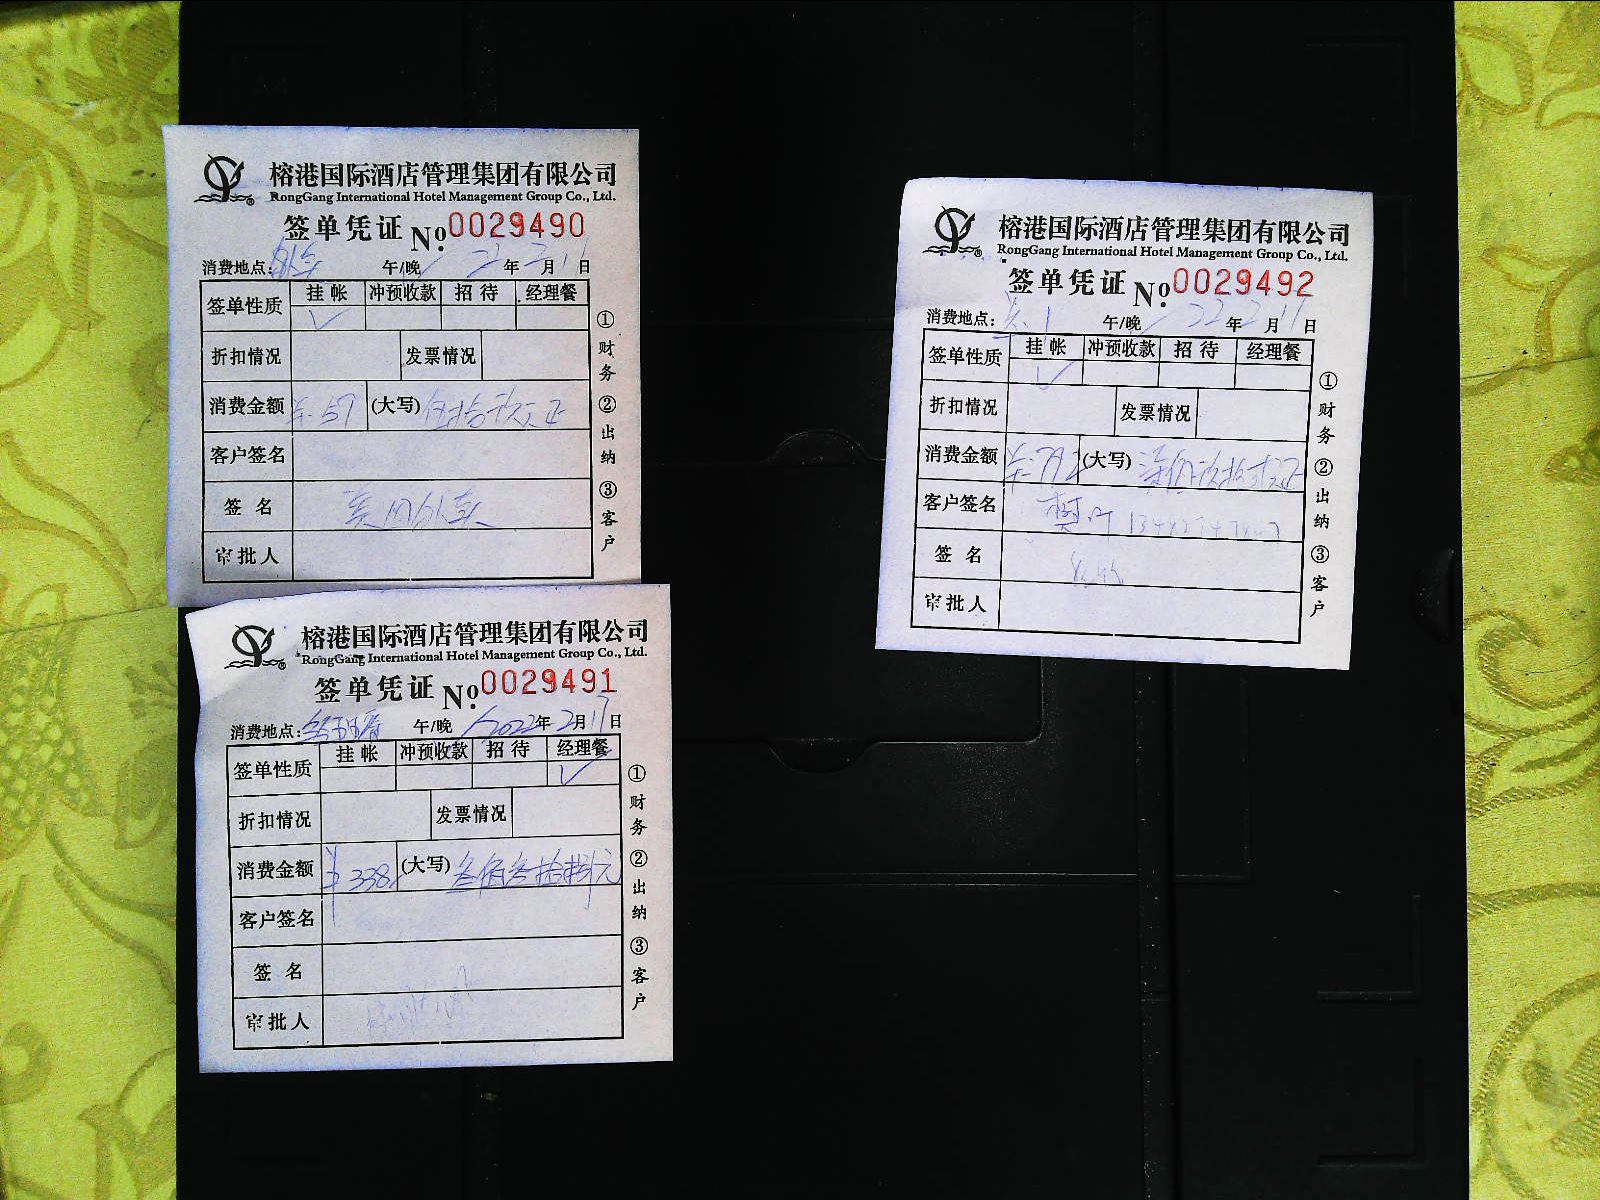 榕港国际酒店管理集团有限公司
RongGang International Hotel Management Group Co., Ltd.
签单凭证 No. 0029490
消费地点: 午/晚 22年2月 日
签单性质 挂帐 冲预收款 招待 经理餐
✓
折扣情况 发票情况
消费金额 ¥:57 (大写)
客户签名
签名 美团外卖
审批人
①财务 ②出纳 ③客户
榕港国际酒店管理集团有限公司
RongGang International Hotel Management Group Co., Ltd.
签单凭证 No. 0029491
消费地点: 午/晚 2022年2月17日
签单性质 挂帐 冲预收款 招待 经理餐
✓
折扣情况 发票情况
消费金额 ¥338 (大写) 叁佰叁拾捌元
客户签名
签名
审批人
①财务 ②出纳 ③客户
榕港国际酒店管理集团有限公司
RongGang International Hotel Management Group Co., Ltd.
签单凭证 No. 0029492
消费地点: 午/晚 22年2月 日
签单性质 挂帐 冲预收款 招待 经理餐
✓
折扣情况 发票情况
消费金额 ¥:792 (大写) 柒佰玖拾贰元正
客户签名
签名
审批人
①财务 ②出纳 ③客户